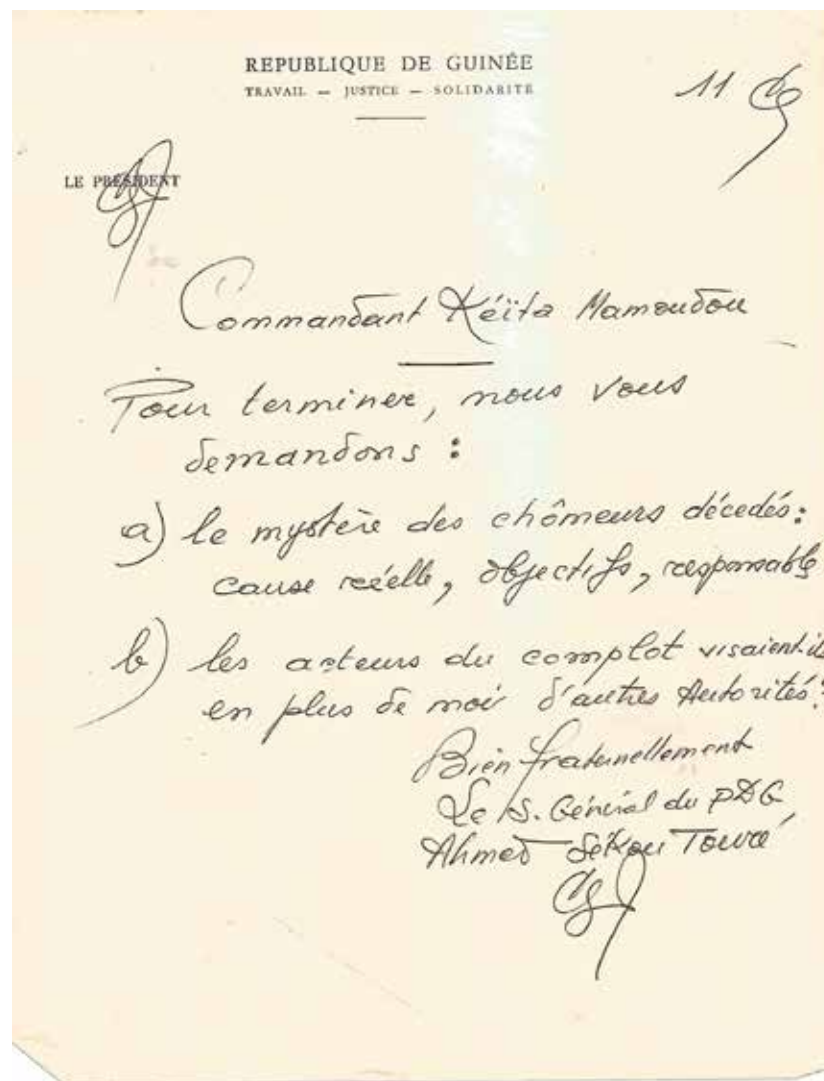 REPUBLIQUE DE GUINÉE
TRAVAIL — JUSTICE — SOLIDARITE
11
LE PRÉSIDENT
Commandant Kéïta Mamoudou
Pour terminer, nous vous
demandons :
a) le mystère des chômeurs décedés :
cause réelle, objectifs, responsable
b) les acteurs du complot visaient-ils
en plus de moi d'autres Autorités ?
Bien fraternellement
Le S. Général du PDG
Ahmed Sékou Touré